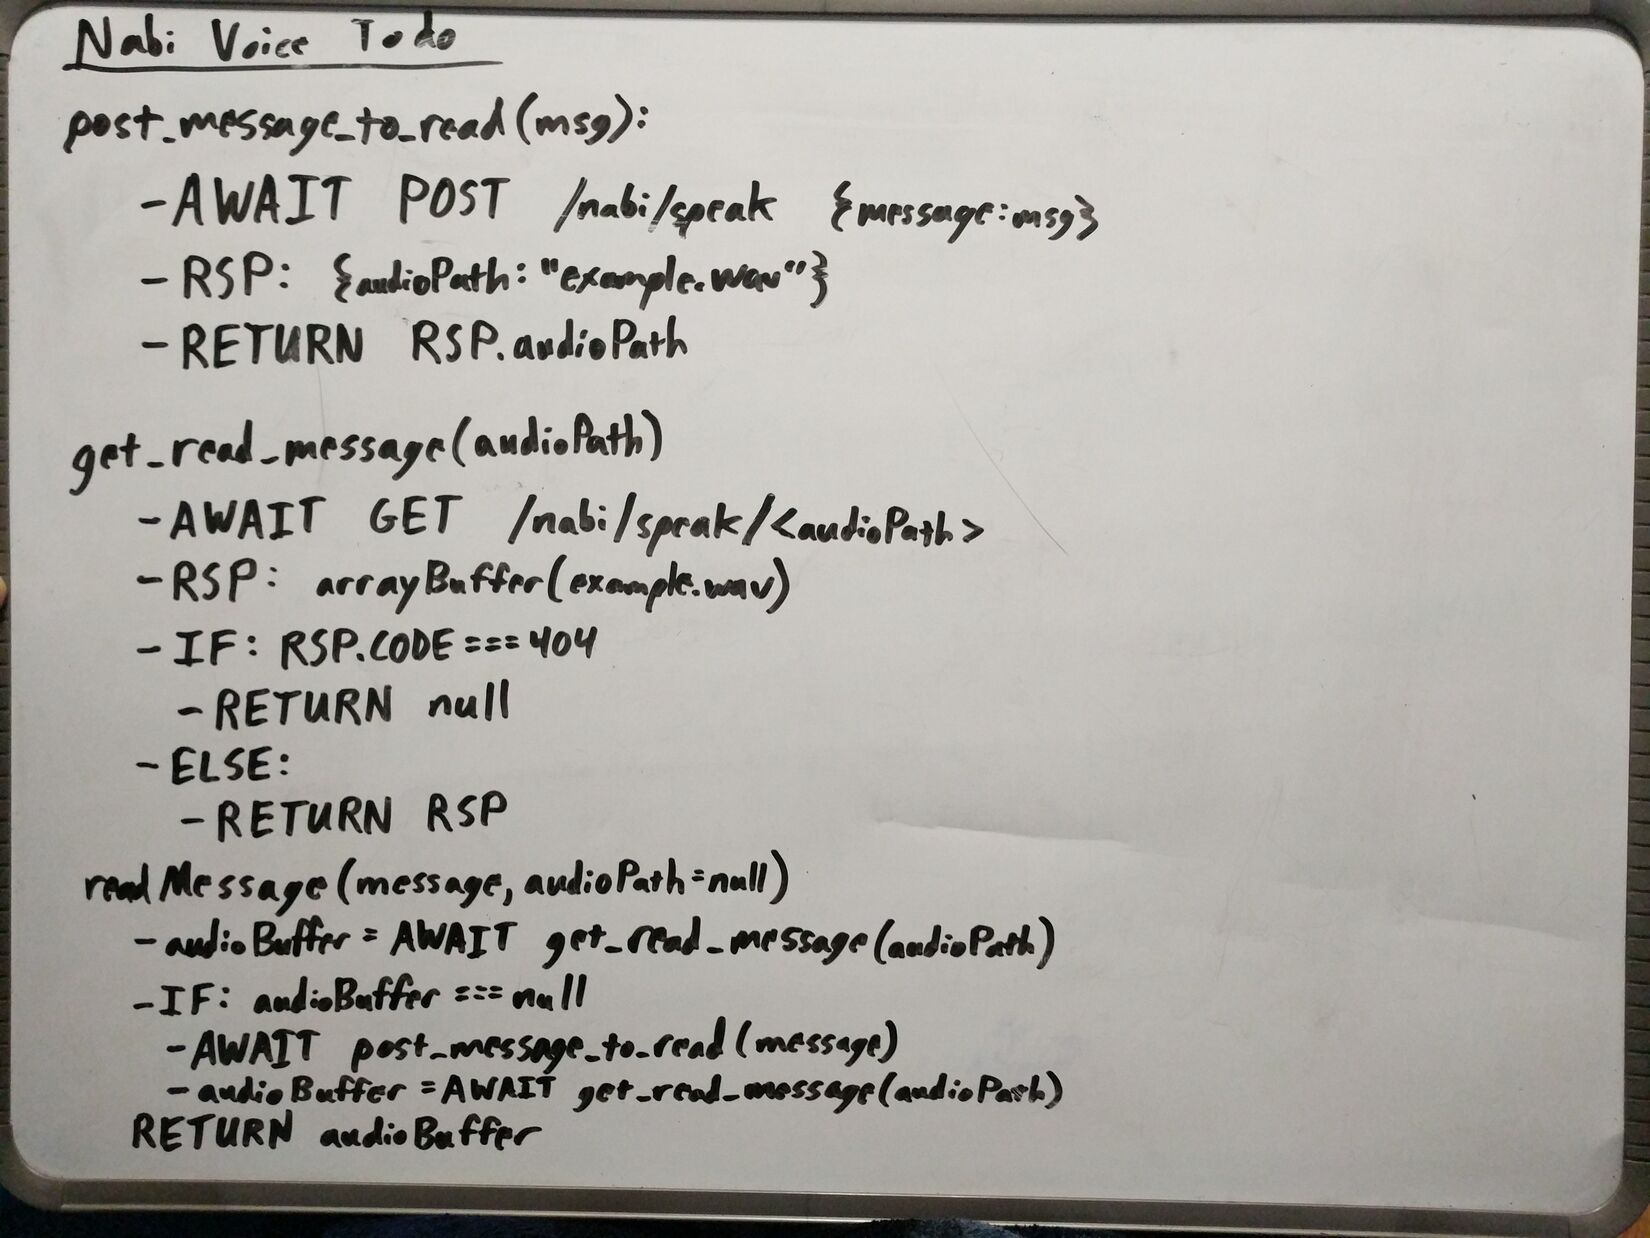 Nabi Voice Todo
post_message_to_read(msg):
- AWAIT POST /nabi/speak {message:msg}
- RSP: {audioPath: "example.wav"}
- RETURN RSP.audioPath
get_read_message(audioPath)
- AWAIT GET /nabi/speak/<audioPath>
- RSP: arrayBuffer(example.wav)
- IF: RSP.CODE === 404
- RETURN null
- ELSE:
- RETURN RSP
readMessage(message, audioPath=null)
- audioBuffer = AWAIT get_read_message(audioPath)
- IF: audioBuffer === null
- AWAIT post_message_to_read(message)
- audioBuffer = AWAIT get_read_message(audioPath)
RETURN audioBuffer